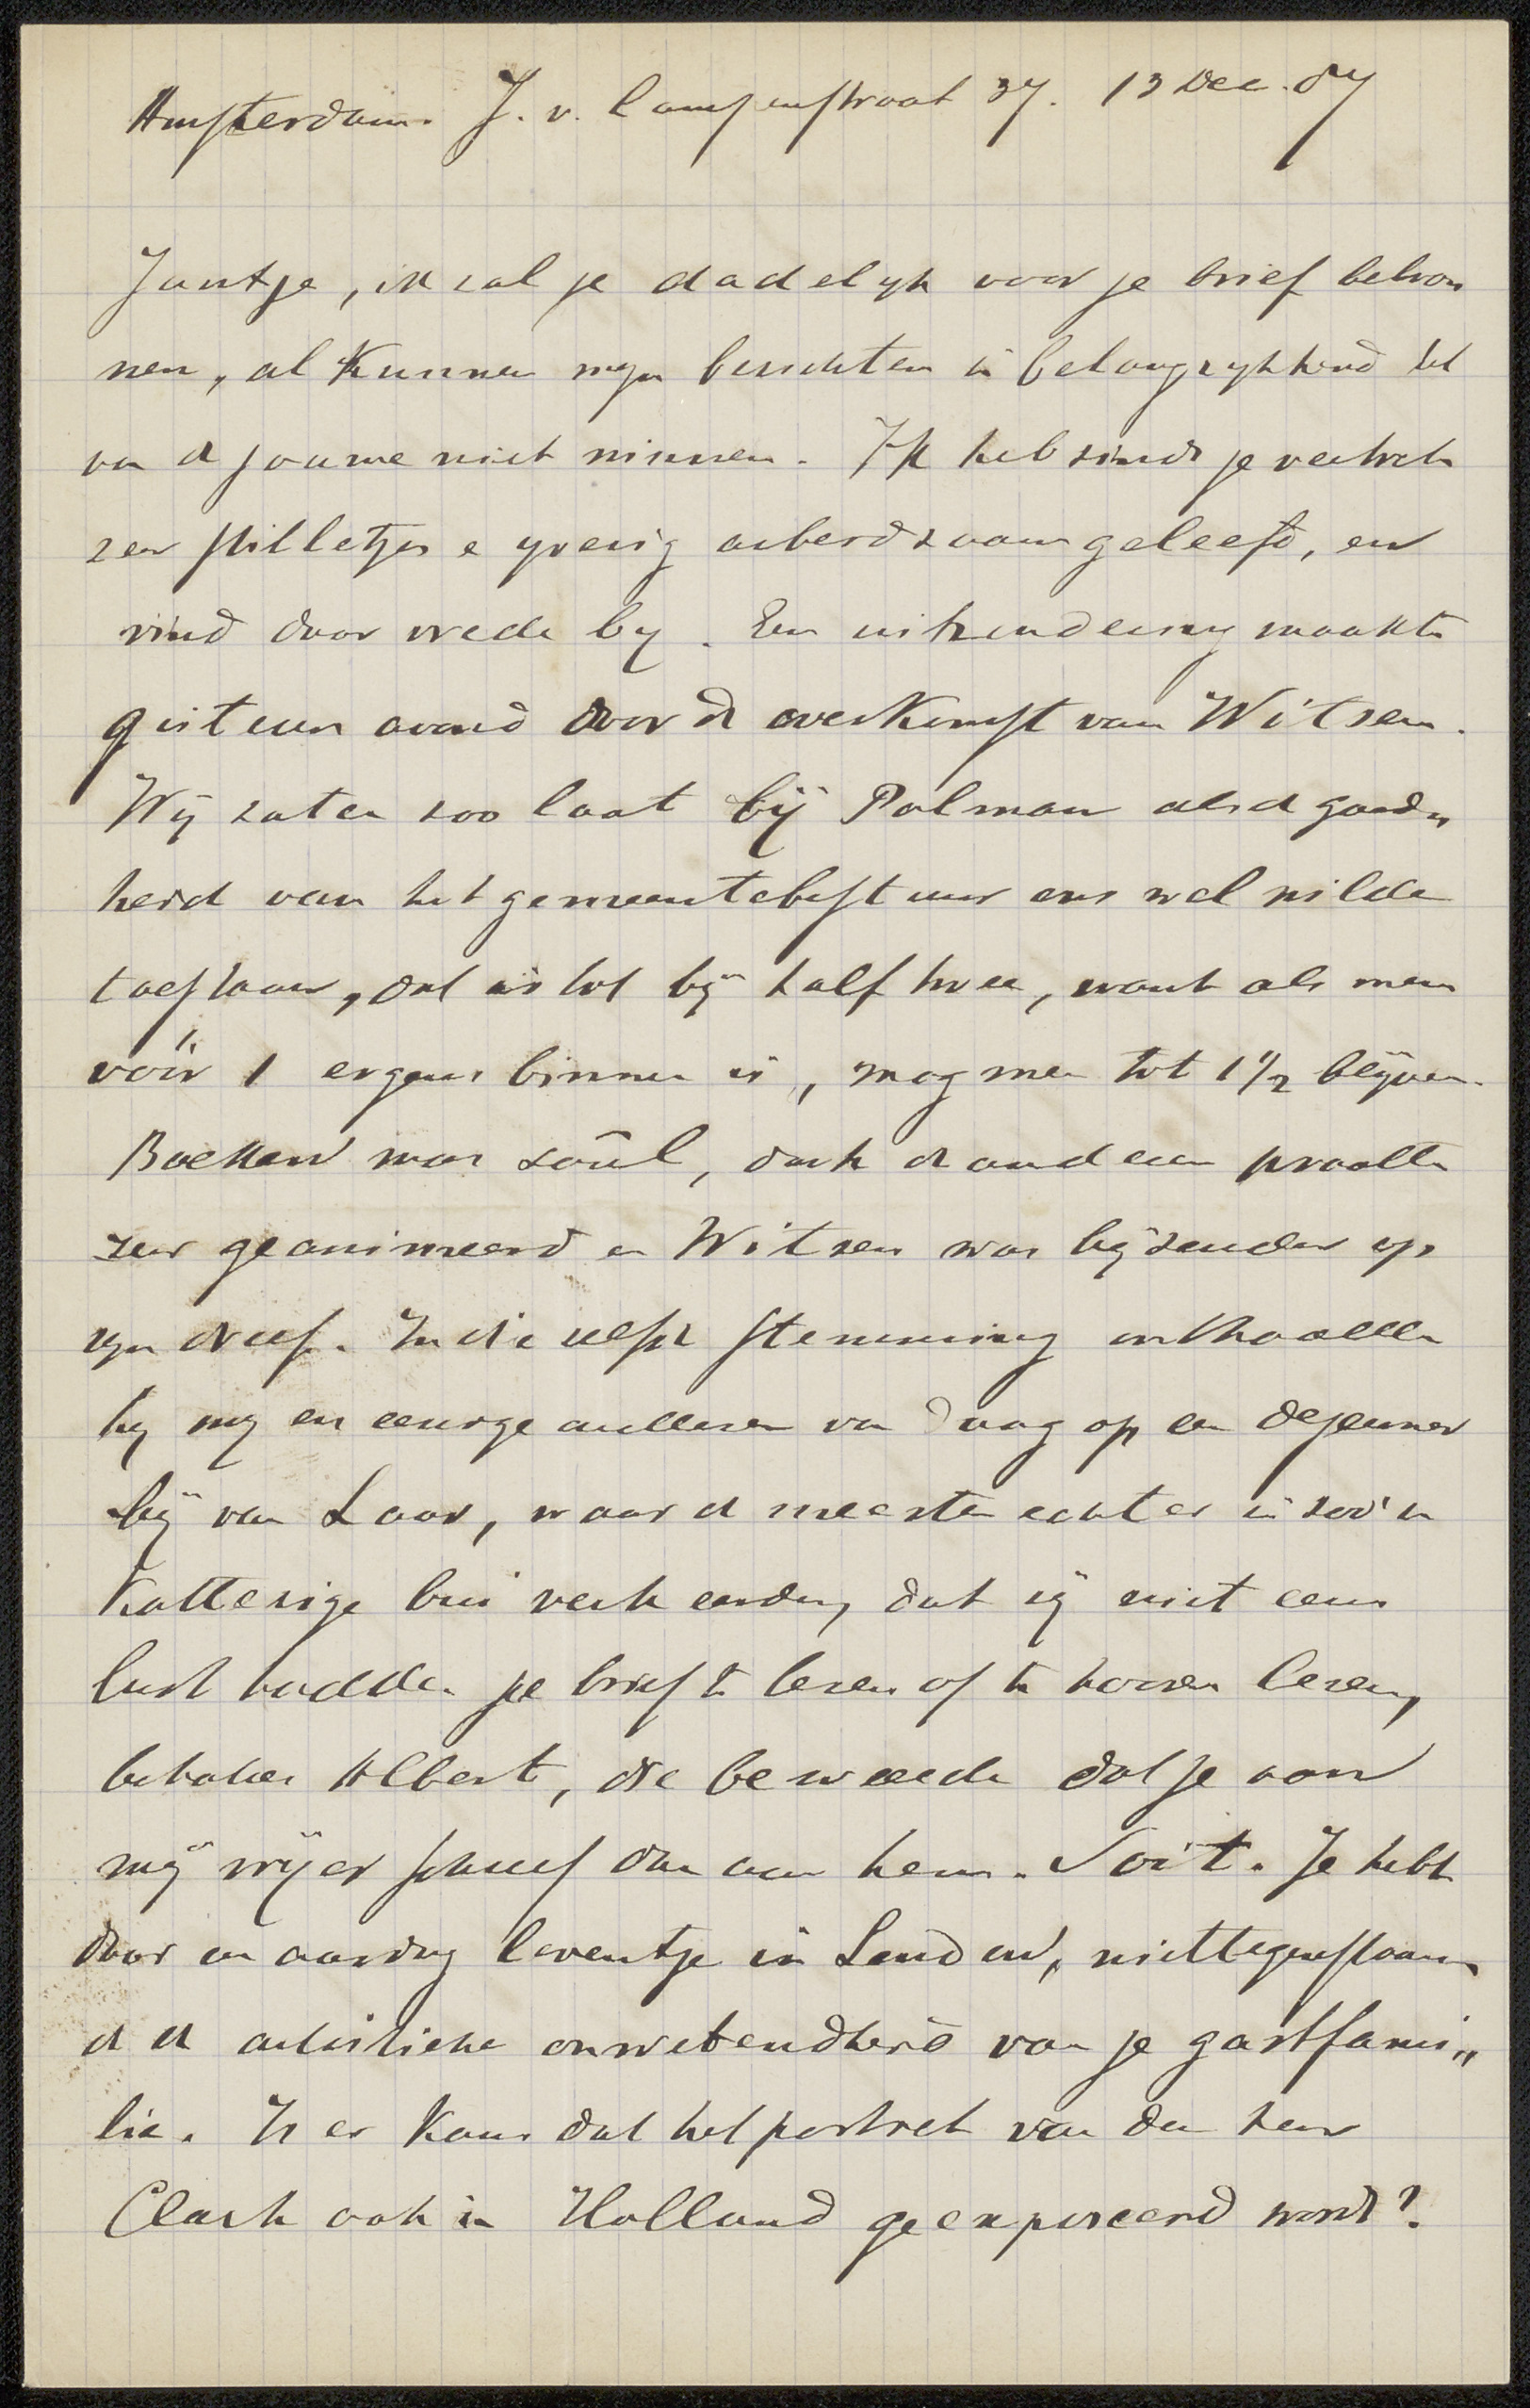 Amsterdam. J. v. Campenstraat 37. 13 Dec. 87
Jantje, ik zal je dadelyk voor je brief beloo
nen, al kunnen myn berichten in belangrykheid het
van d jouwe niet winnen. Ik heb sinds je vertrek
zeer stilletjes e yverig arbeidzaam geleefd, en
vind daar vrede by. Een uitzondering maakte
gisteren avond door d overkomst van Witsen.
Wij zaten zoo laat bij Polman als d goed„
heid van het gemeentebestuur ons wel wilde
toestaan, dat is tot bij half twee, want als men
vóór 1 ergens binnen is, mag men tot 1 1/2 blijven.
Boeken was soûl, doch d anderen praatten
zeer geanimeerd en Witsen was bijzonder op
zyn dreef. In die zelfde stemming onthaalde
hy my en eenige anderen van daag op een dejeuner
bij van Laar, waar d meesten echter in zoo'n
katterige bui verkeerden, dat zij niet eens
lust hadden je brief te lezen of te hooren lezen,
behalve Albert, die beweerde dat je aan
mij vrijer schreef dan aan hem. Soit. Je hebt
daar een aardig leventje in Londen, niettegenstaan„
d d artistieke onwetendheid van je gastfami„
lie. Is er kans dat het portret van den heer
Clark ook in Holland geexposeerd wordt?